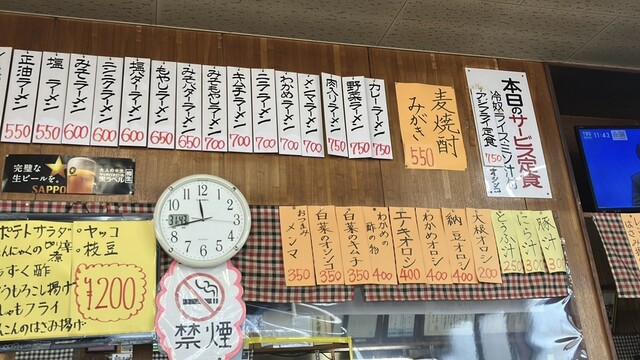 正油ラーメン 550
塩ラーメン 550
みそラーメン 600
ニンニクラーメン 600
塩バターラーメン 600
もやしラーメン 650
みそバターラーメン 650
みそもやしラーメン 700
キムチラーメン 700
ニララーメン 700
わかめラーメン 700
メンマラーメン 700
肉入りラーメン 750
野菜ラーメン 750
カレーラーメン 750
麦焼酎
みがき
550
本日のサービス定食
冷奴ライスミソ汁付
アジフライ定食
750
オシンコ
11:43
完璧な
生ビールを。
SAPPO
大人の★生
生ラベル
ポテトサラダ
ヤッコ
枝豆
もずく酢
¥200
12
1
2
3
4
5
6
7
8
9
10
11
禁煙
おつまみ
メンマ 350
白菜のオシンコ 350
白菜のキムチ 350
わかめの酢の物 400
エノキオロシ 400
わかめオロシ 400
納豆オロシ 400
大根オロシ 200
とうふ汁 250
にら汁 300
豚汁 300